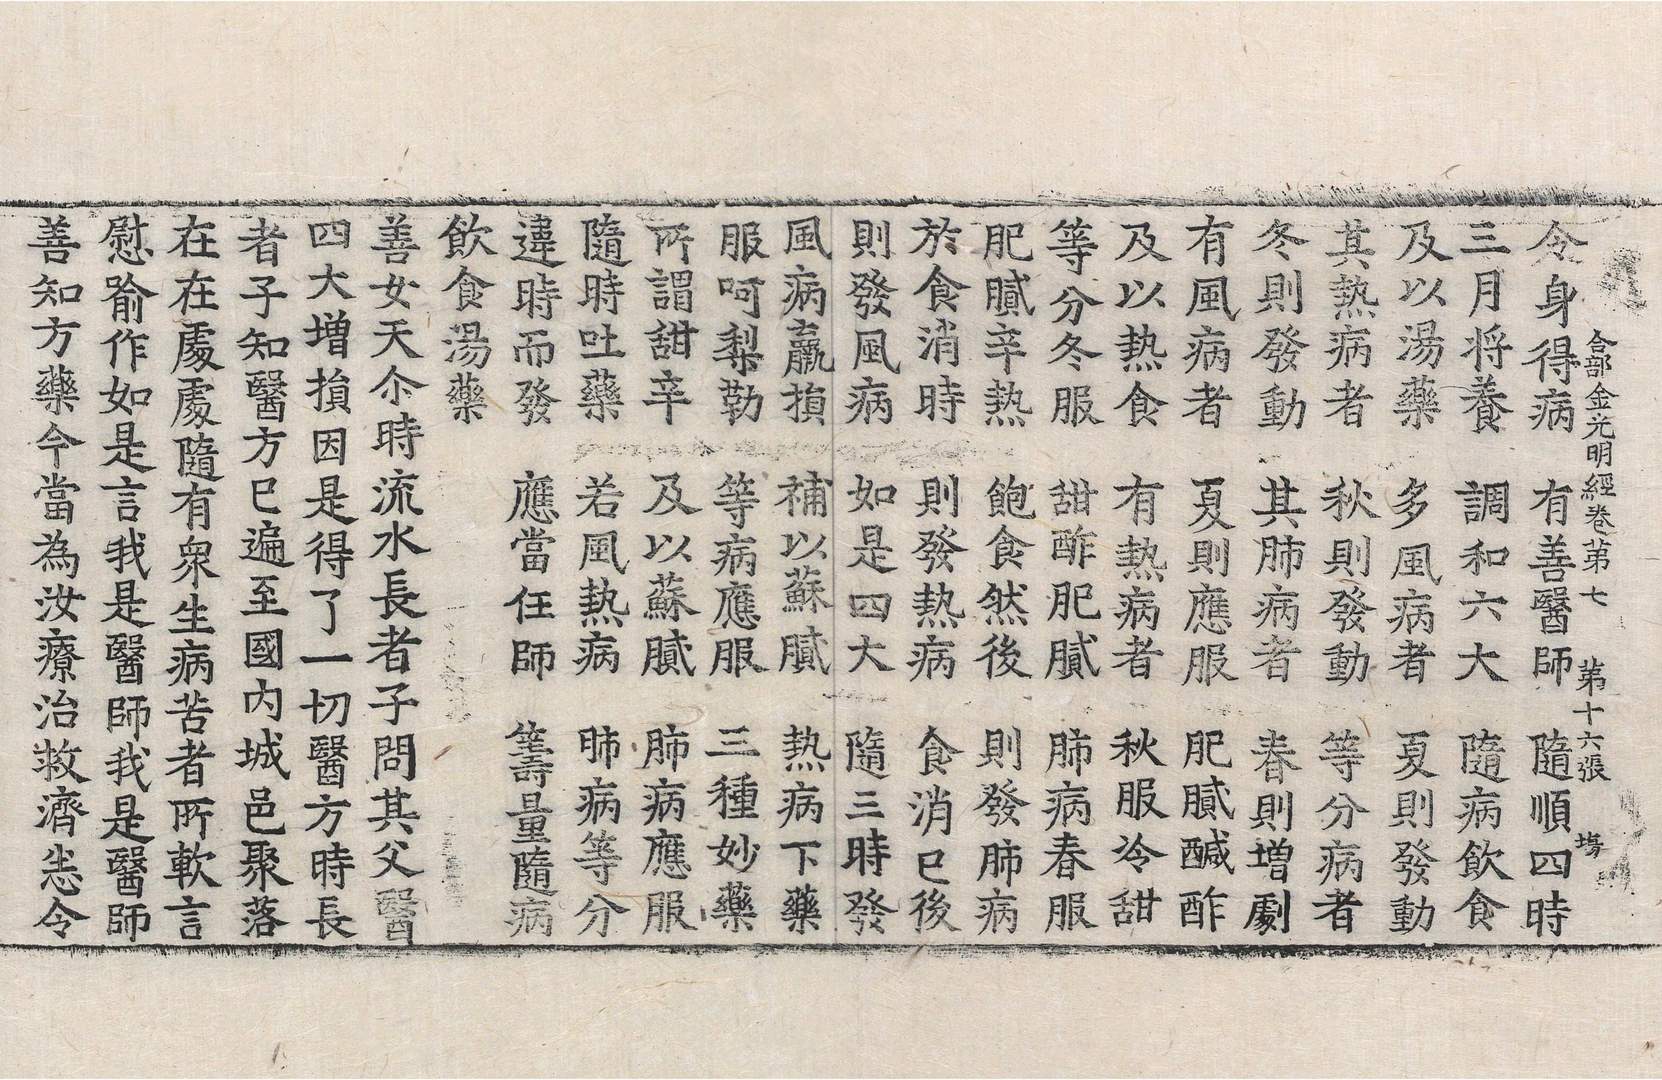 合部金光明經卷第七 第十六張 塲
令身得病 有善醫師 隨順四時
三月将養 調和六大 隨病飲食
及以湯藥 多風病者 夏則發動
其熱病者 秋則發動 等分病者
冬則發動 其肺病者 春則增劇
有風病者 夏則應服 肥膩醎酢
及以熱食 有熱病者 秋服冷甜
等分冬服 甜酢肥膩 肺病春服
肥膩辛熱 飽食然後 則發肺病
於食消時 則發熱病 食消已後
則發風病 如是四大 隨三時發
風病羸損 補以蘇膩 熱病下藥
服呵梨勒 等病應服 三種妙藥
所謂甜辛 及以蘇膩 肺病應服
隨時吐藥 若風熱病 肺病等分
違時而發 應當任師 籌量隨病
飲食湯藥
善女天尒時流水長者子問其父醫
四大增損因是得了一切醫方時長
者子知醫方已遍至國內城邑聚落
在在處處隨有衆生病苦者所軟言
慰喻作如是言我是醫師我是醫師
善知方藥今當為汝療治救濟悉令